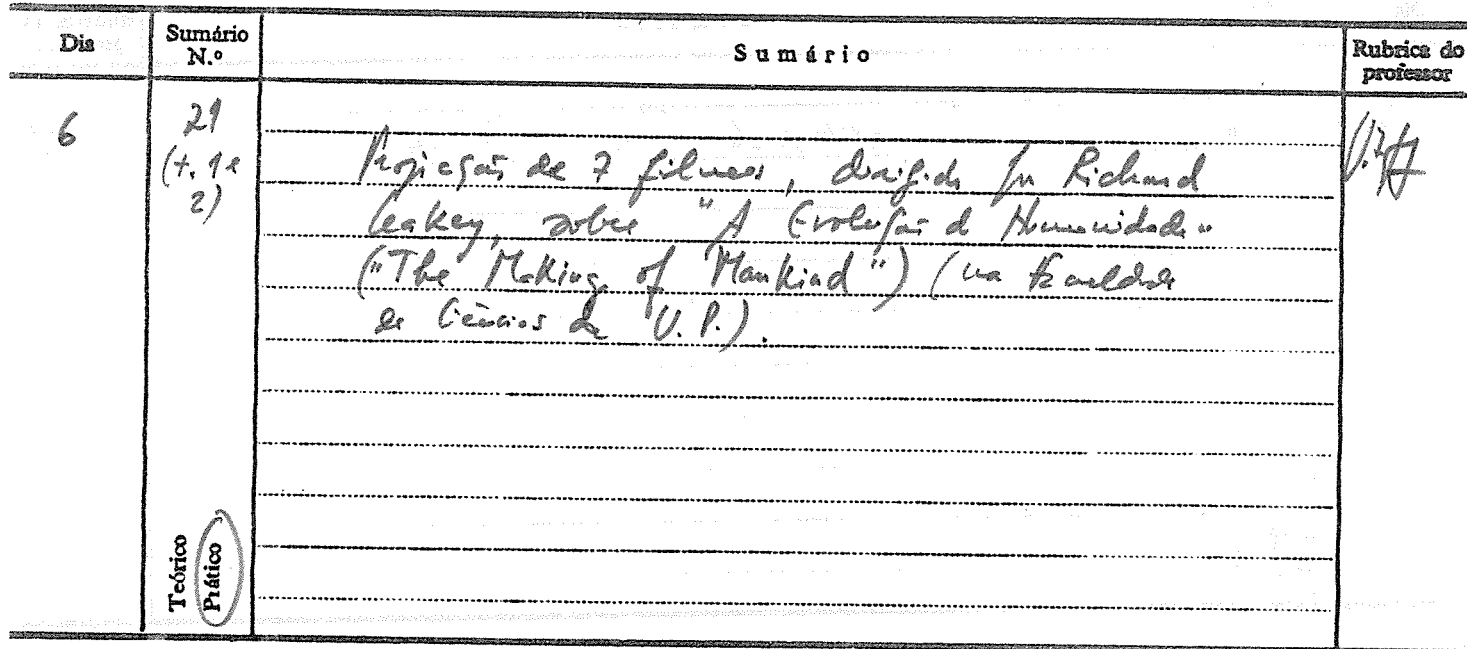 Dia
Sumário N.º
Sumário
Rubrica do professor
6
21
(t. 1 e
2)
Projecção de 7 filmes, dirigidos por Richard
Leakey, sobre "A Evolução da Humanidade"
("The Making of Mankind") (na Faculdade
de Ciências da U.P.).
Teórico
Prático